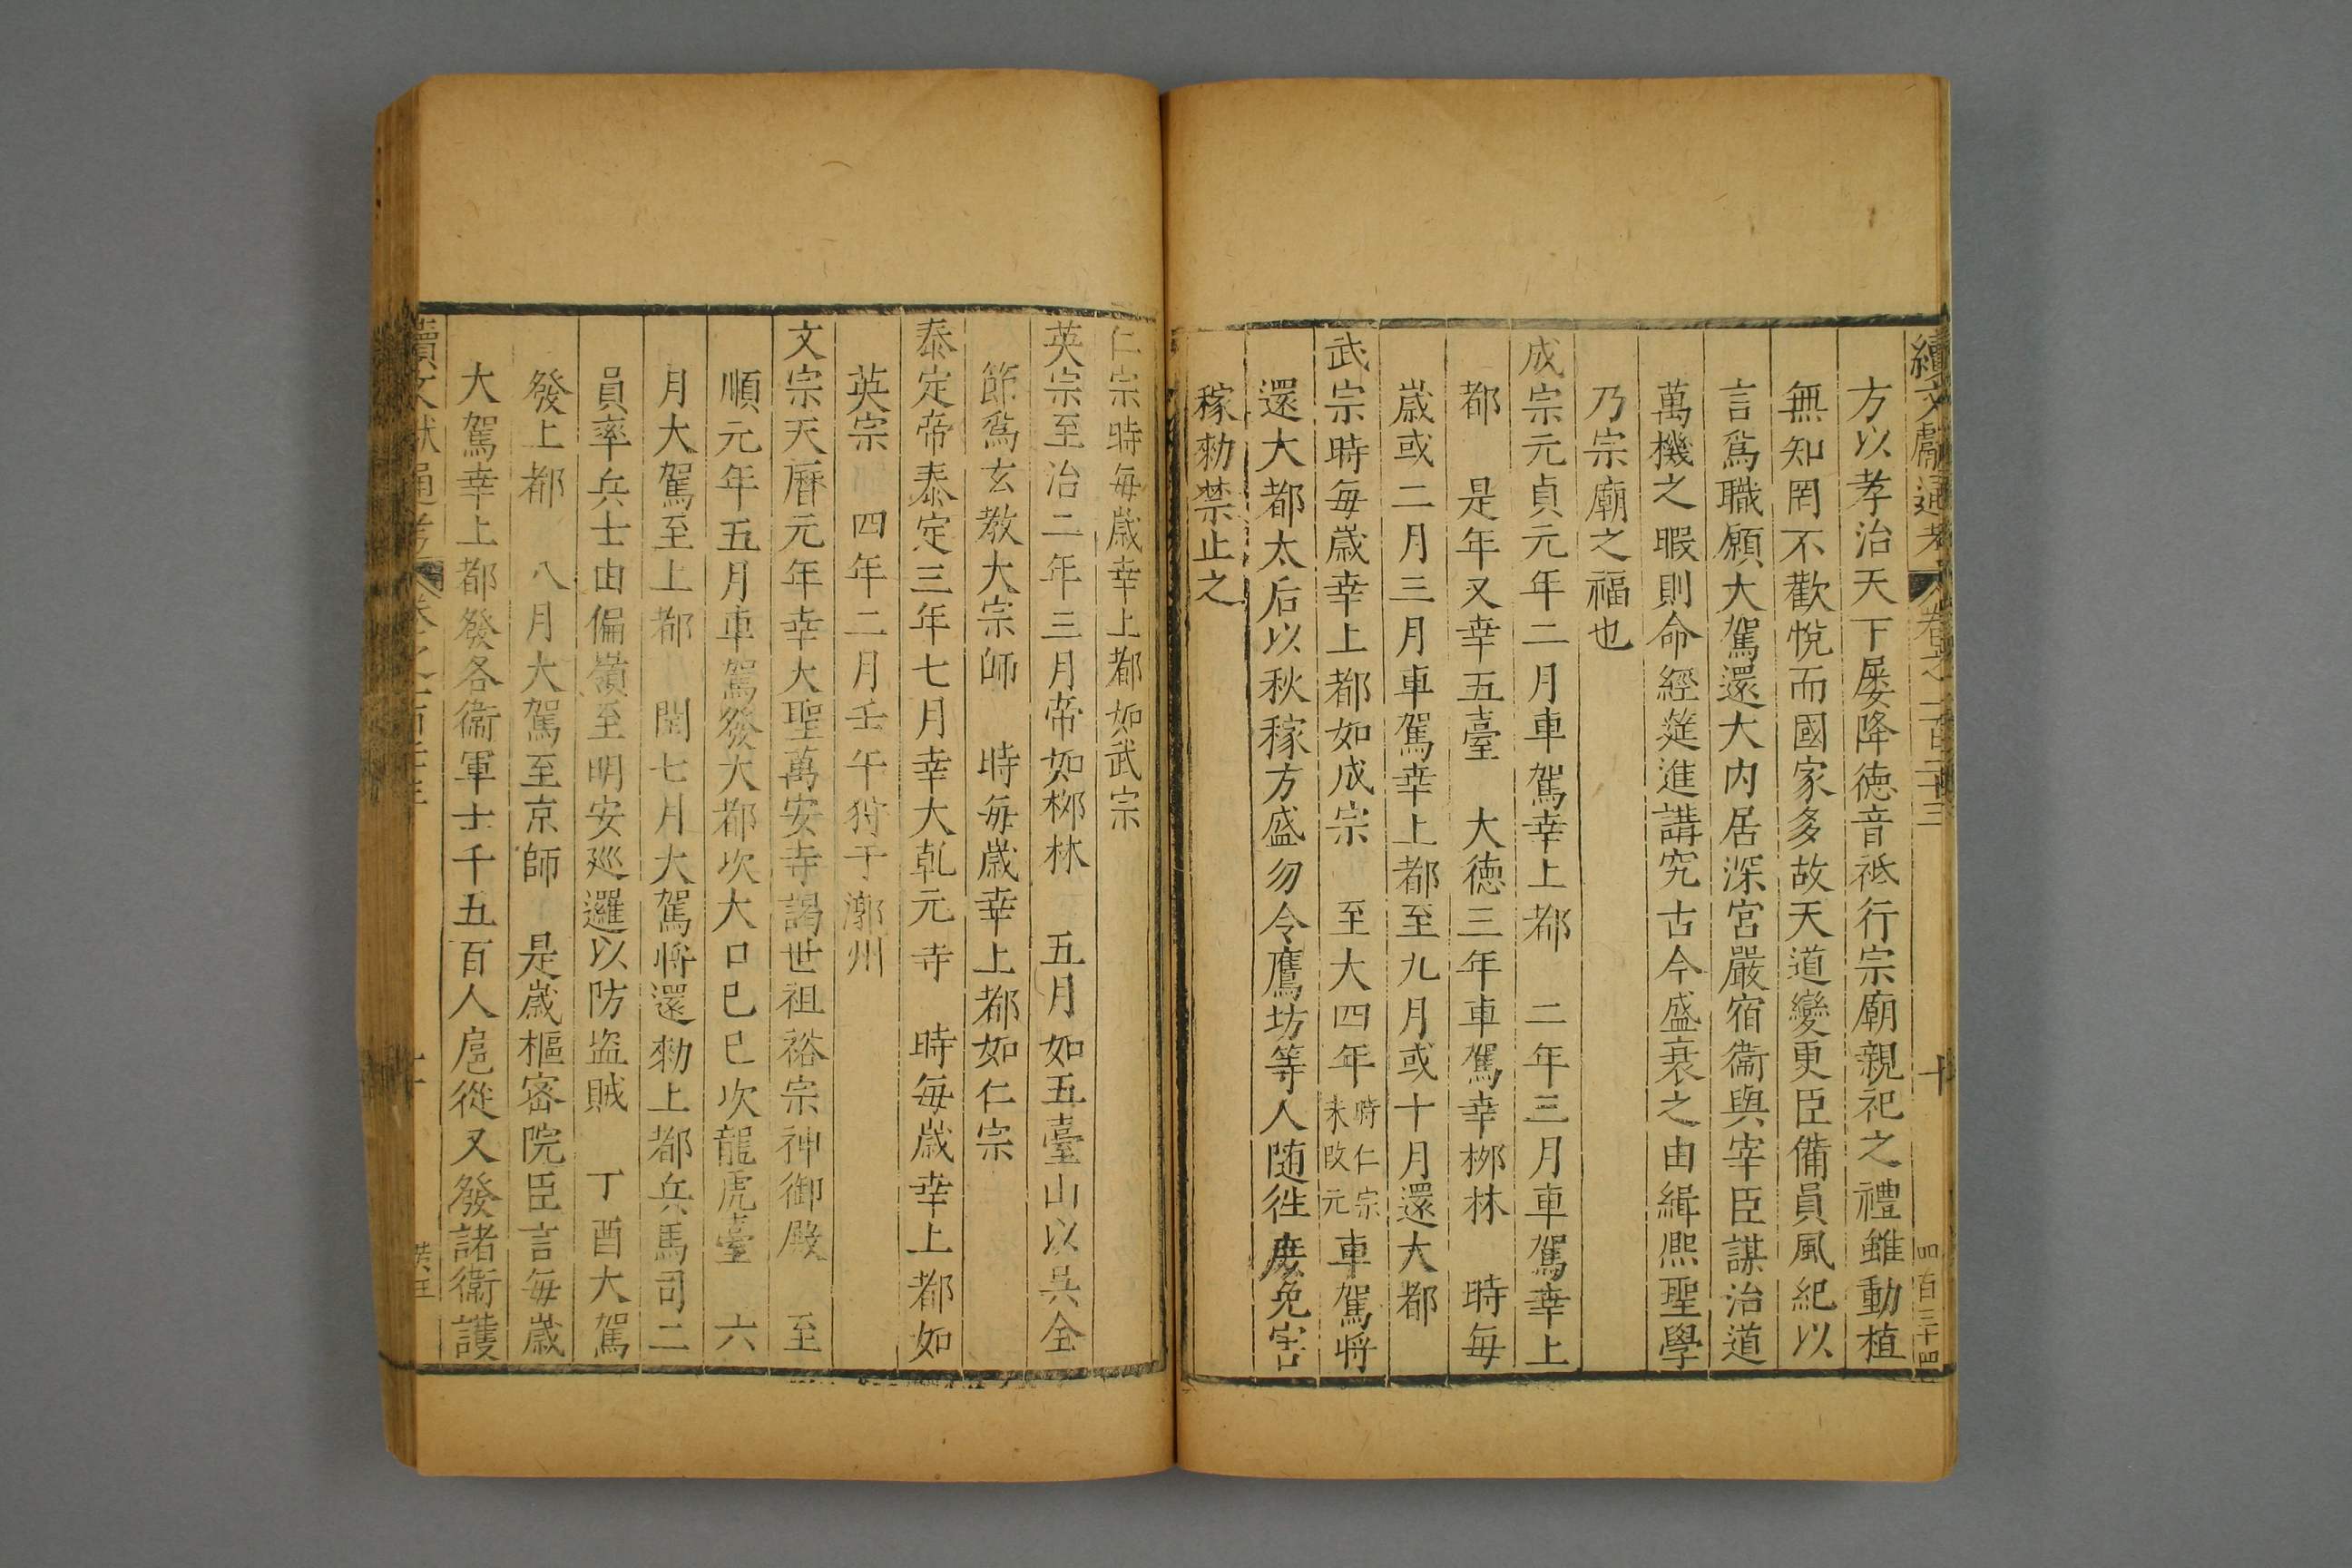 續文獻通考 卷之一百二十三 十 四百三十四
方以孝治天下屡降德音祗行宗廟親祀之禮雖動植
無知罔不歡悅而國家多故天道變更臣備員風紀以
言爲職願大駕還大内居深宮嚴宿衞與宰臣謀治道
萬機之暇則命經筵進講究古今盛衰之由緝熈聖學
乃宗廟之福也
成宗元貞元年二月車駕幸上都 二年三月車駕幸上
都 是年又幸五臺 大德三年車駕幸栁林 時毎
嵗或二月三月車駕幸上都至九月或十月還大都
武宗時每嵗幸上都如成宗 至大四年時仁宗未改元車駕將
還大都太后以秋稼方盛勿令鷹坊等人随徃庻免害
稼勑禁止之
仁宗時每嵗幸上都如武宗
英宗至治二年三月帝如栁林 五月如五臺山以吳全
節爲玄教大宗師 時毎嵗幸上都如仁宗
泰定帝泰定三年七月幸大乹元寺 時每嵗幸上都如
英宗 四年二月壬午狩于漷州
文宗天曆元年幸大聖萬安寺謁世祖裕宗神御殿 至
順元年五月車駕發大都次大口巳巳次龍虎臺 六
月大駕至上都 閏七月大駕將還勑上都兵馬司二
員率兵士由偏嶺至明安廵邏以防盜賊 丁酉大駕
發上都 八月大駕至京師 是嵗樞密院臣言每歲
大駕幸上都發各衞軍士千五百人扈從又發諸衞護
續文獻通考